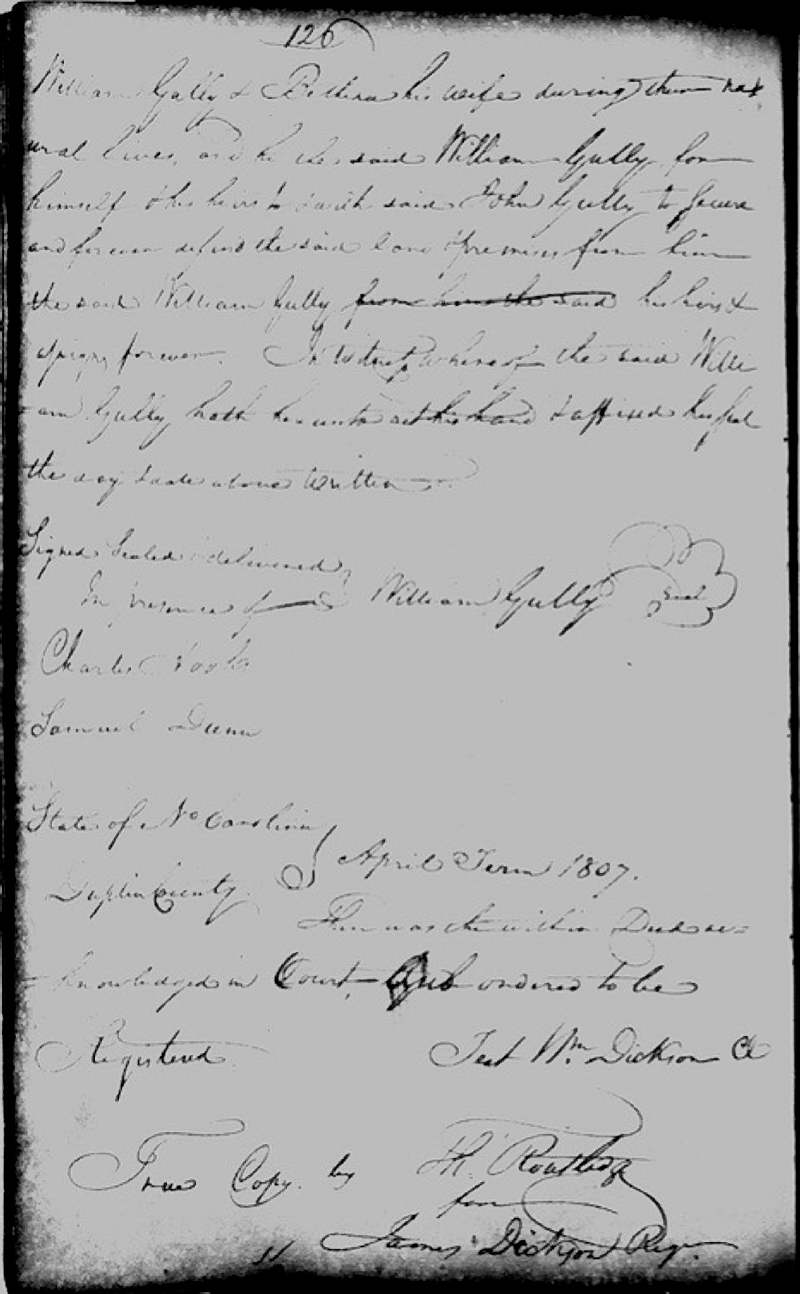 126
William Gully & his wife during their nat
ural lives, and he the said William Gully for
himself & his heirs doth said John Gully to
and forever defend the said Land & premises from him
the said William Gully from him the said his heirs &
assigns forever. In Witness whereof the said Willi
-am Gully hath hereunto set his hand & affixed his seal
the day & date above written
Signed Sealed & delivered
In presence of William Gully Seal
Charles
Samuel Dunn
State of No Carolina
Duplin County } April Term 1807.
Then was the within Deed ac=
=knowledged in Court, and ordered to be
Registered
Test Wm. Dickson Clk
True Copy. by Th. Routledge
for
James Dickson Regr.